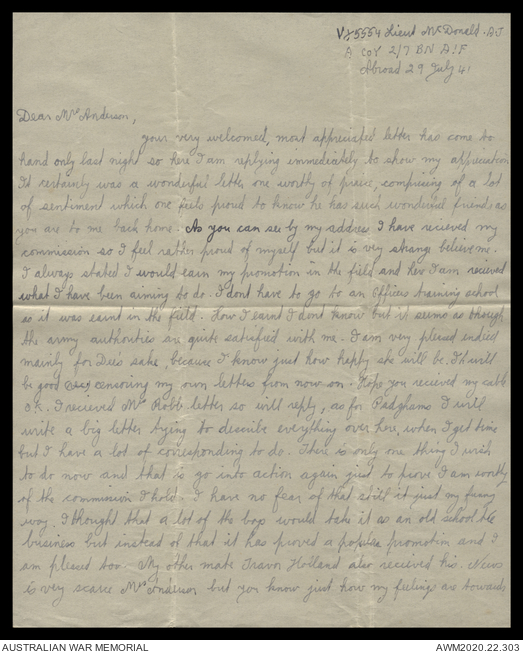 VX5554 Lieut McDonald. A.J
A Coy 2/7 BN AIF
Abroad 29 July 41
Dear Mrs Anderson,
your very welcomed, most appreciated letter has come to
hand only last night so here I am replying immediately to show my appreciation
It certainly was a wonderful letter one worthy of praise, comprising of a lot
of sentiment which one feels proud to know he has such wonderful friends as
you are to me back home. As you can see by my address I have recieved my
commission so I feel rather proud of myself but it is very strange believe me.
I always stated I would earn my promotion in the field and here I am recieved
what I have been aiming to do. I dont have to go to an Officers training school
as it was earnt in the field. How I earnt I dont know but it seems as though
the army authorities are quite satisfied with me. I am very pleased indeed
mainly for Dee's sake, because I know just how happy she will be. It will
be good censoring my own letters from now on. Hope you recieved my cable
O.K. I recieved Mrs Robb letter so will reply, as for Padghams I will
write a big letter trying to describe everything over here, when I get time
but I have a lot of corresponding to do. There is only one thing I wish
to do now and that is go into action again just to prove I am worthy
of the commission I hold. I have no fear of that still it just my funny
way. I thought that a lot of the boys would take it as an old school tie
business but instead of that it has proved a popular promotion and I
am pleased too. My other mate Travor Holland also recieved his. News
is very scarce Mrs Anderson but you know just how my feelings are towards
AUSTRALIAN WAR MEMORIAL
AWM2020.22.303